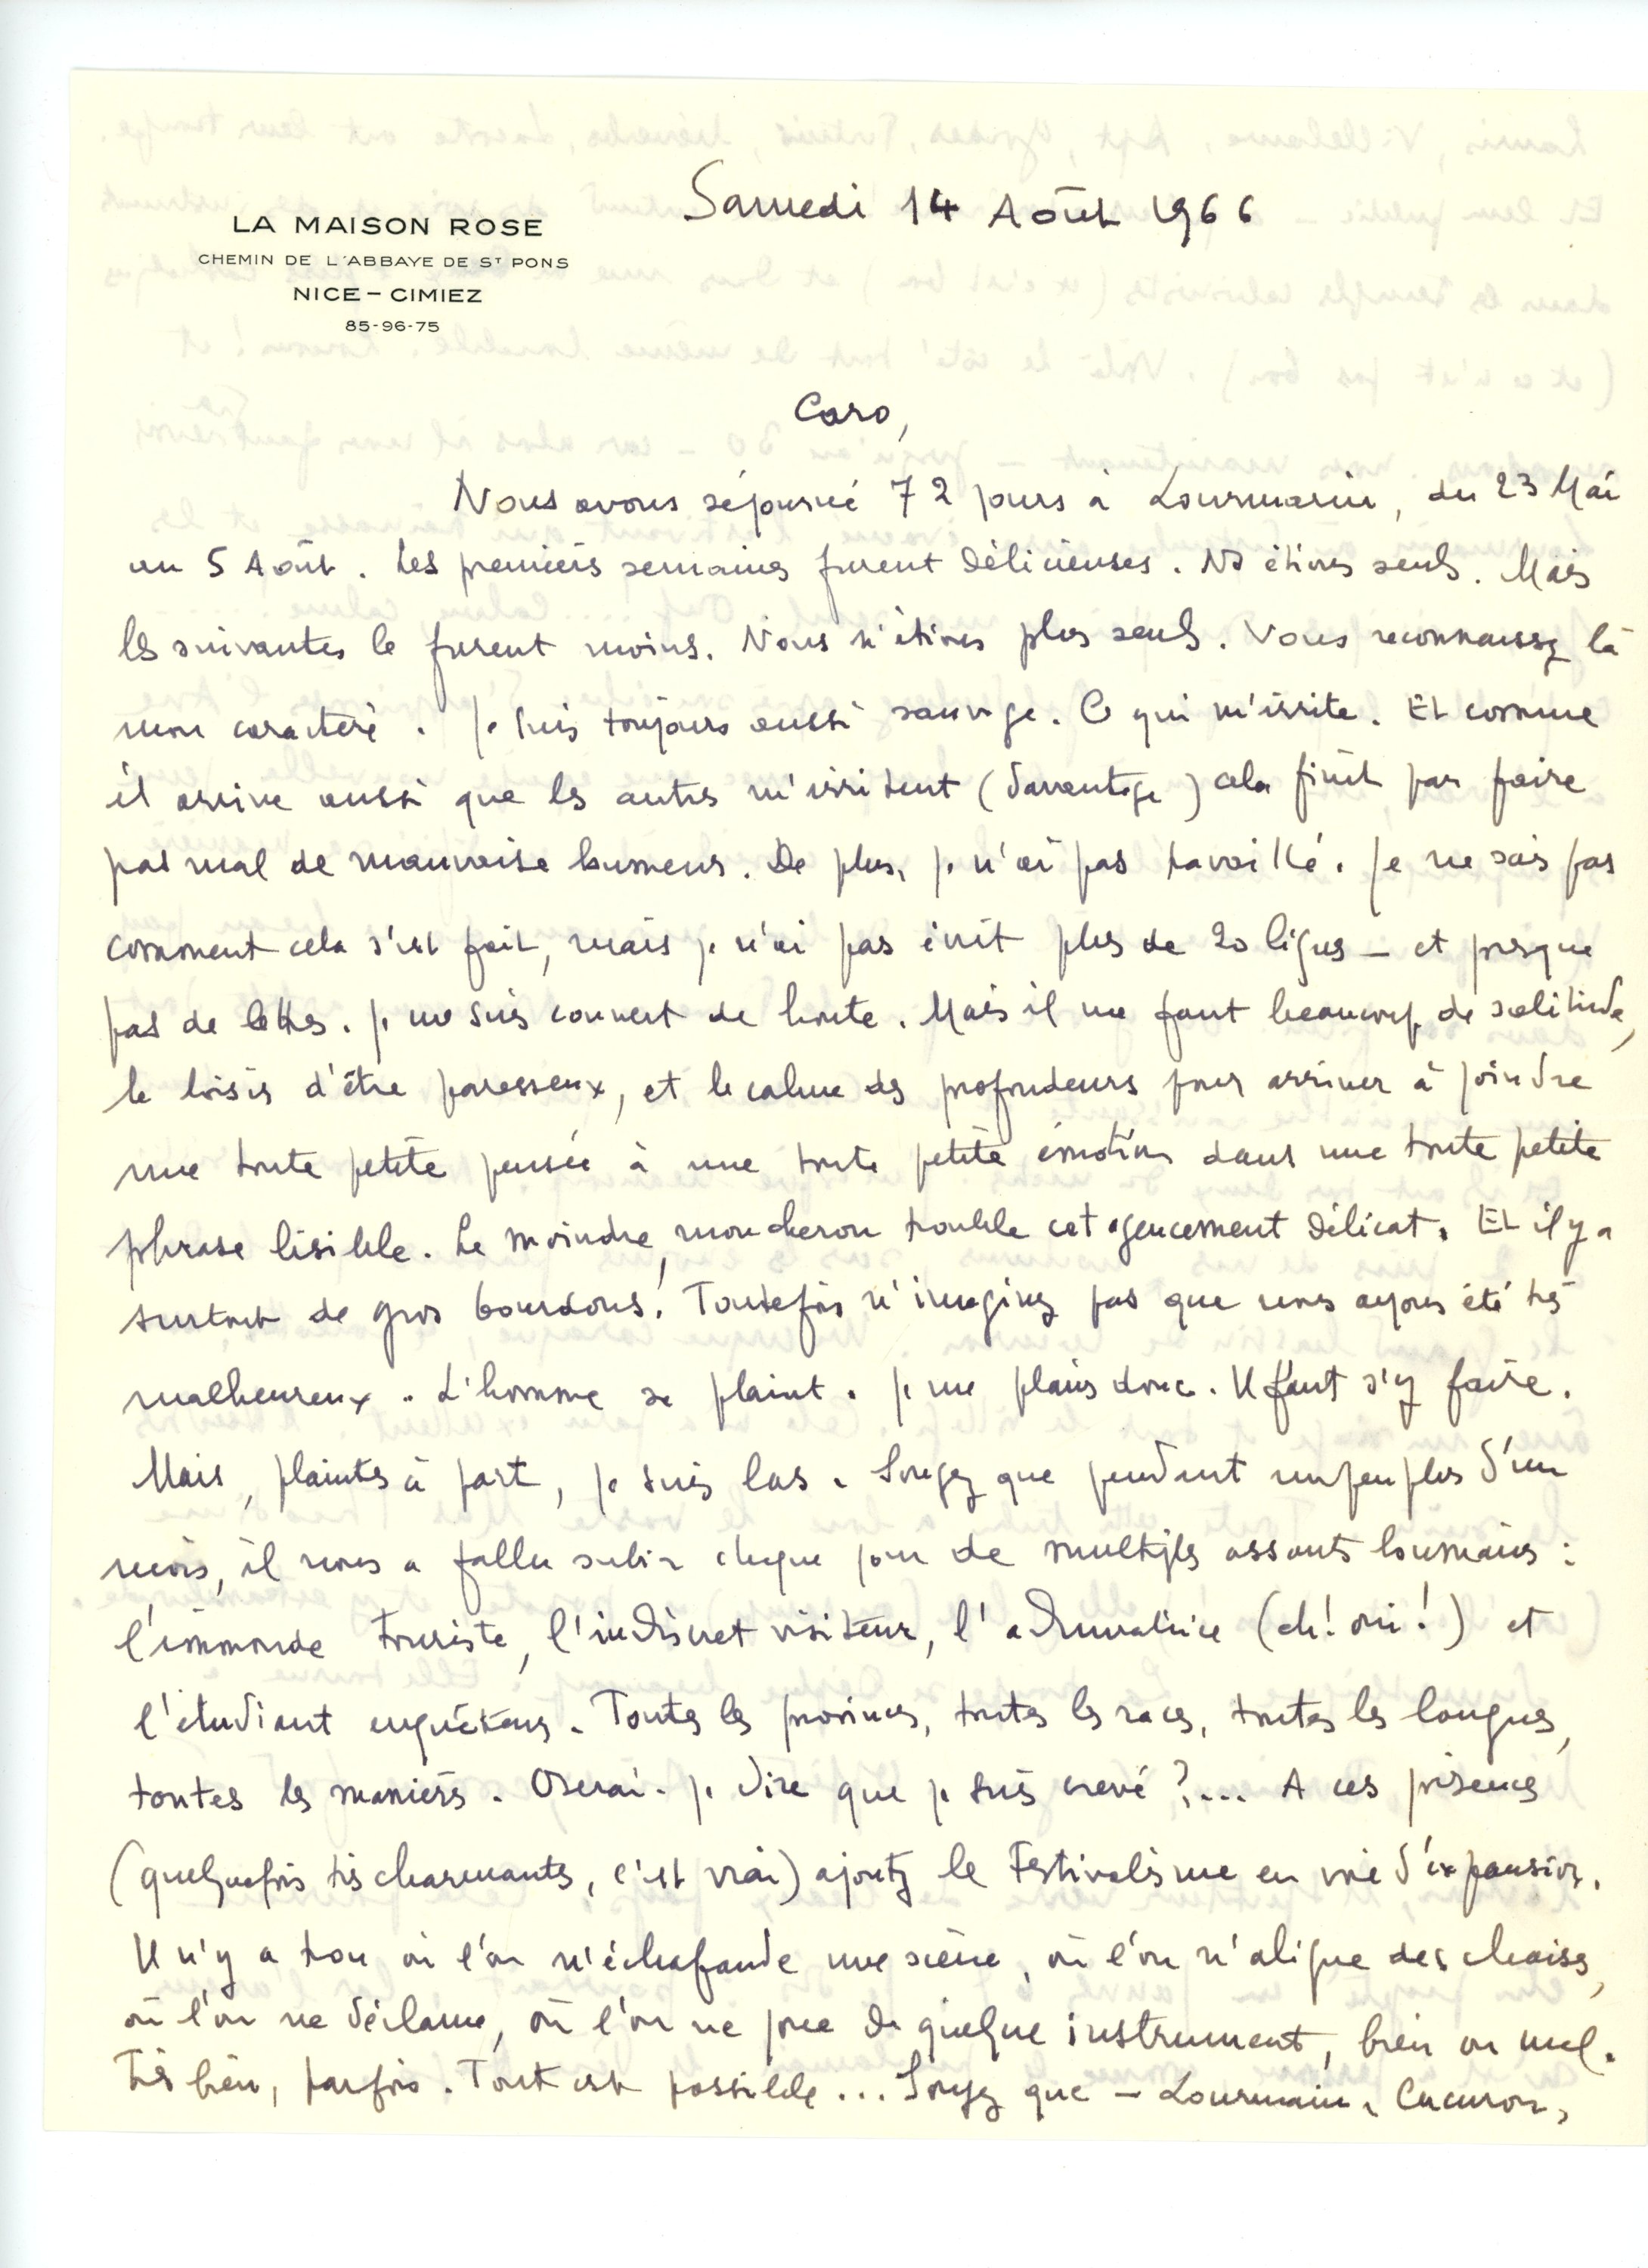 LA MAISON ROSE
CHEMIN DE L'ABBAYE DE ST PONS
NICE - CIMIEZ
85-96-75
Samedi 14 Août 1966
Caro,
Nous avons séjourné 72 jours à Lourmarin, du 23 Mai
au 5 Août. Les premières semaines furent délicieuses. Ns étions seuls. Mais
les suivantes le furent moins. Nous n'étions plus seuls. Vous reconnaissez là
mon caractère. Je suis toujours aussi sauvage. Ce qui m'irrite. Et comme
il arrive aussi que les autres m'irritent (davantage) cela finit par faire
pas mal de mauvaise humeur. De plus, je n'ai pas travaillé. Je ne sais pas
comment cela s'est fait, mais je n'ai pas écrit plus de 20 lignes - et presque
pas de lettres. Je me suis couvert de honte. Mais il me faut beaucoup de solitude,
le loisir d'être paresseux, et le calme des profondeurs pour arriver à joindre
une toute petite pensée à une toute petite émotion dans une toute petite
phrase lisible. Le moindre moucheron trouble cet agencement délicat. Et il y a
surtout de gros bourdons! Toutefois n'imaginez pas que nous ayons été très
malheureux. L'homme se plaint. Je me plains donc. Il faut s'y faire.
Mais, plaintes à part, je suis las. Songez que pendant un peu plus d'un
mois, il nous a fallu subir chaque jour de multiples assauts humains :
l'immonde touriste, l'indiscret visiteur, l'admiratrice (eh! oui!) et
l'étudiant enquêteur. Toutes les provinces, toutes les races, toutes les langues,
toutes les manières. Oserai-je dire que je suis crevé ?... A ces présences
(quelquefois très charmantes, c'est vrai) ajoutez le Festivalisme en voie d'expansion.
Il n'y a trou où l'on n'échafaude une scène, où l'on n'aligne des chaises,
où l'on ne déclame, où l'on ne joue de quelque instrument, bien ou mal.
Très bien, parfois. Tout est possible... Songez que - Lourmarin, Cucuron,